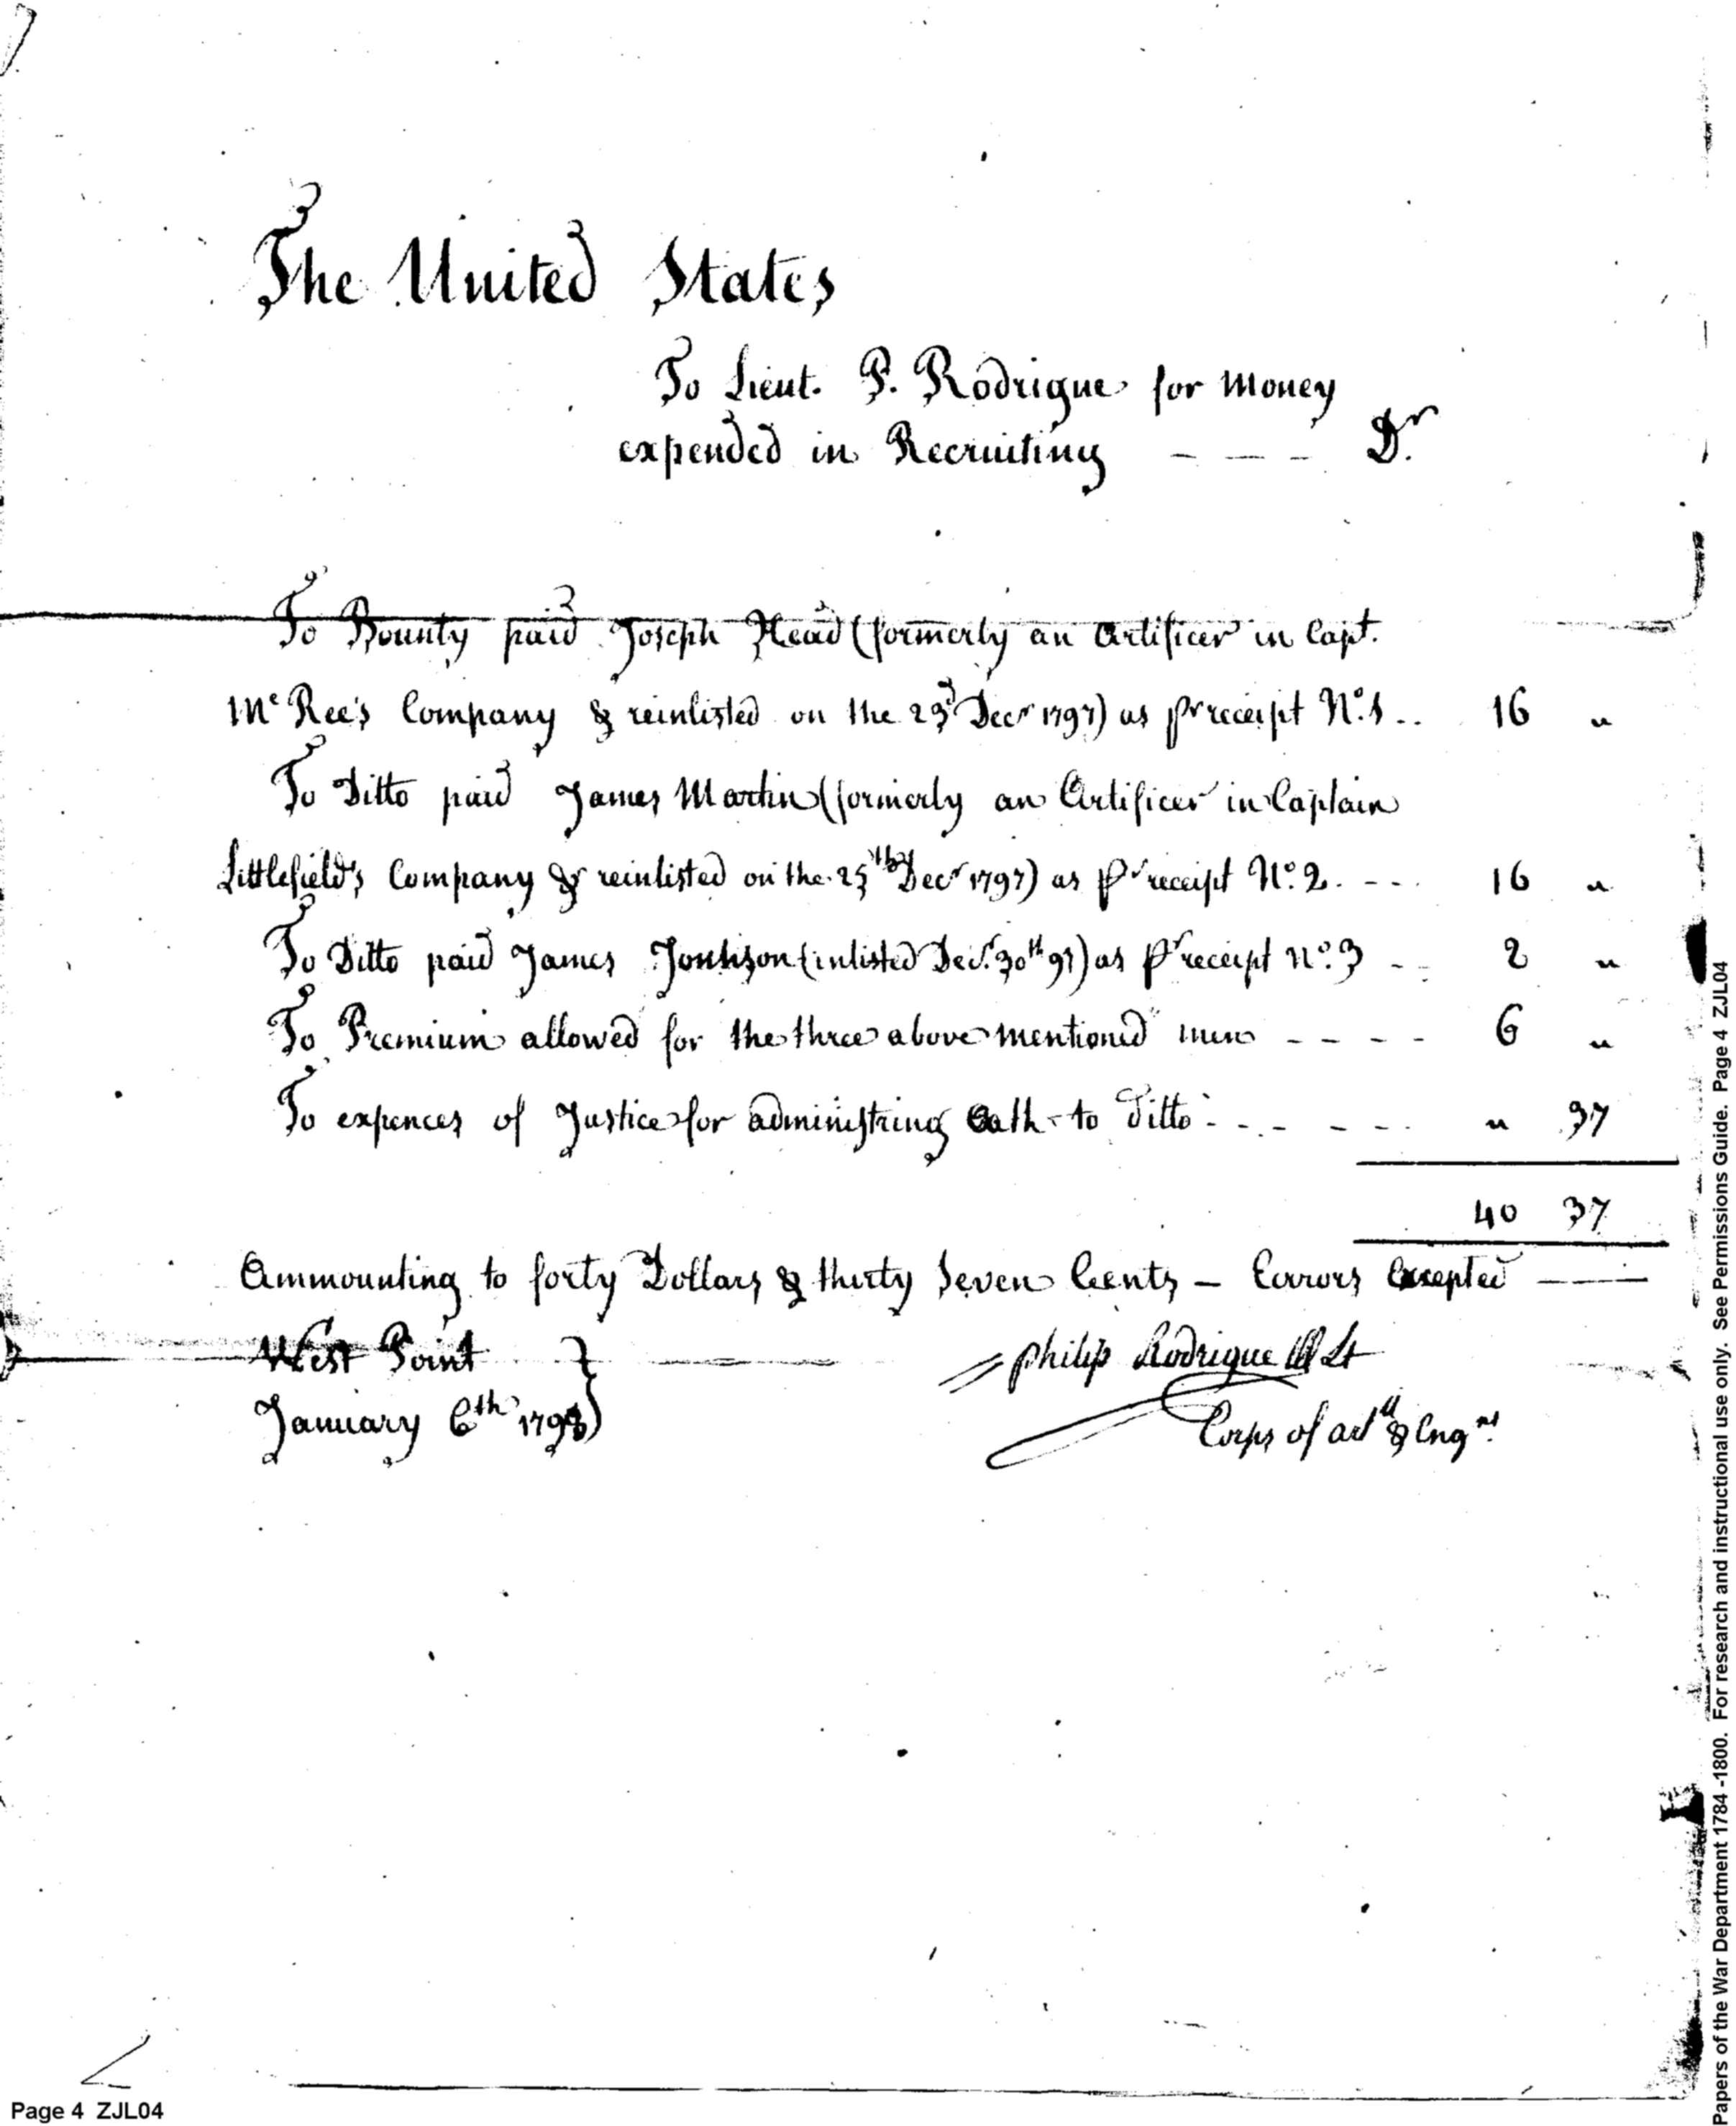 The United States
To Lieut. P. Rodrigue for Money
expended in Recruiting - - - - Dr.
To Bounty paid Joseph Head (formerly an Artificer in Capt.
Mc Ree's Company & reinlisted on the 23d Decr 1797) as pr receipt No. 1 .. 16 "
To Ditto paid James Martin (formerly an Artificer in Captain
Littlefield's Company & reinlisted on the 25th Decr 1797) as pr receipt No. 2. - - - 16 "
To Ditto paid James (inlisted Decr. 30th 97) as pr receipt No. 3 - - 2 "
To Premium allowed for the three above mentioned men - - - - 6 "
To expences of Justice for administring Oath to Ditto - - - - - - " 37
40 37
Ammounting to forty Dollars & thirty Seven Cents – Errors Excepted ——
West Point
January 6th 1798
Philip Rodrigue Lt
Corps of artll & Engrs.
Page 4 ZJL04
Papers of the War Department 1784 -1800. For research and instructional use only. See Permissions Guide. Page 4 ZJL04